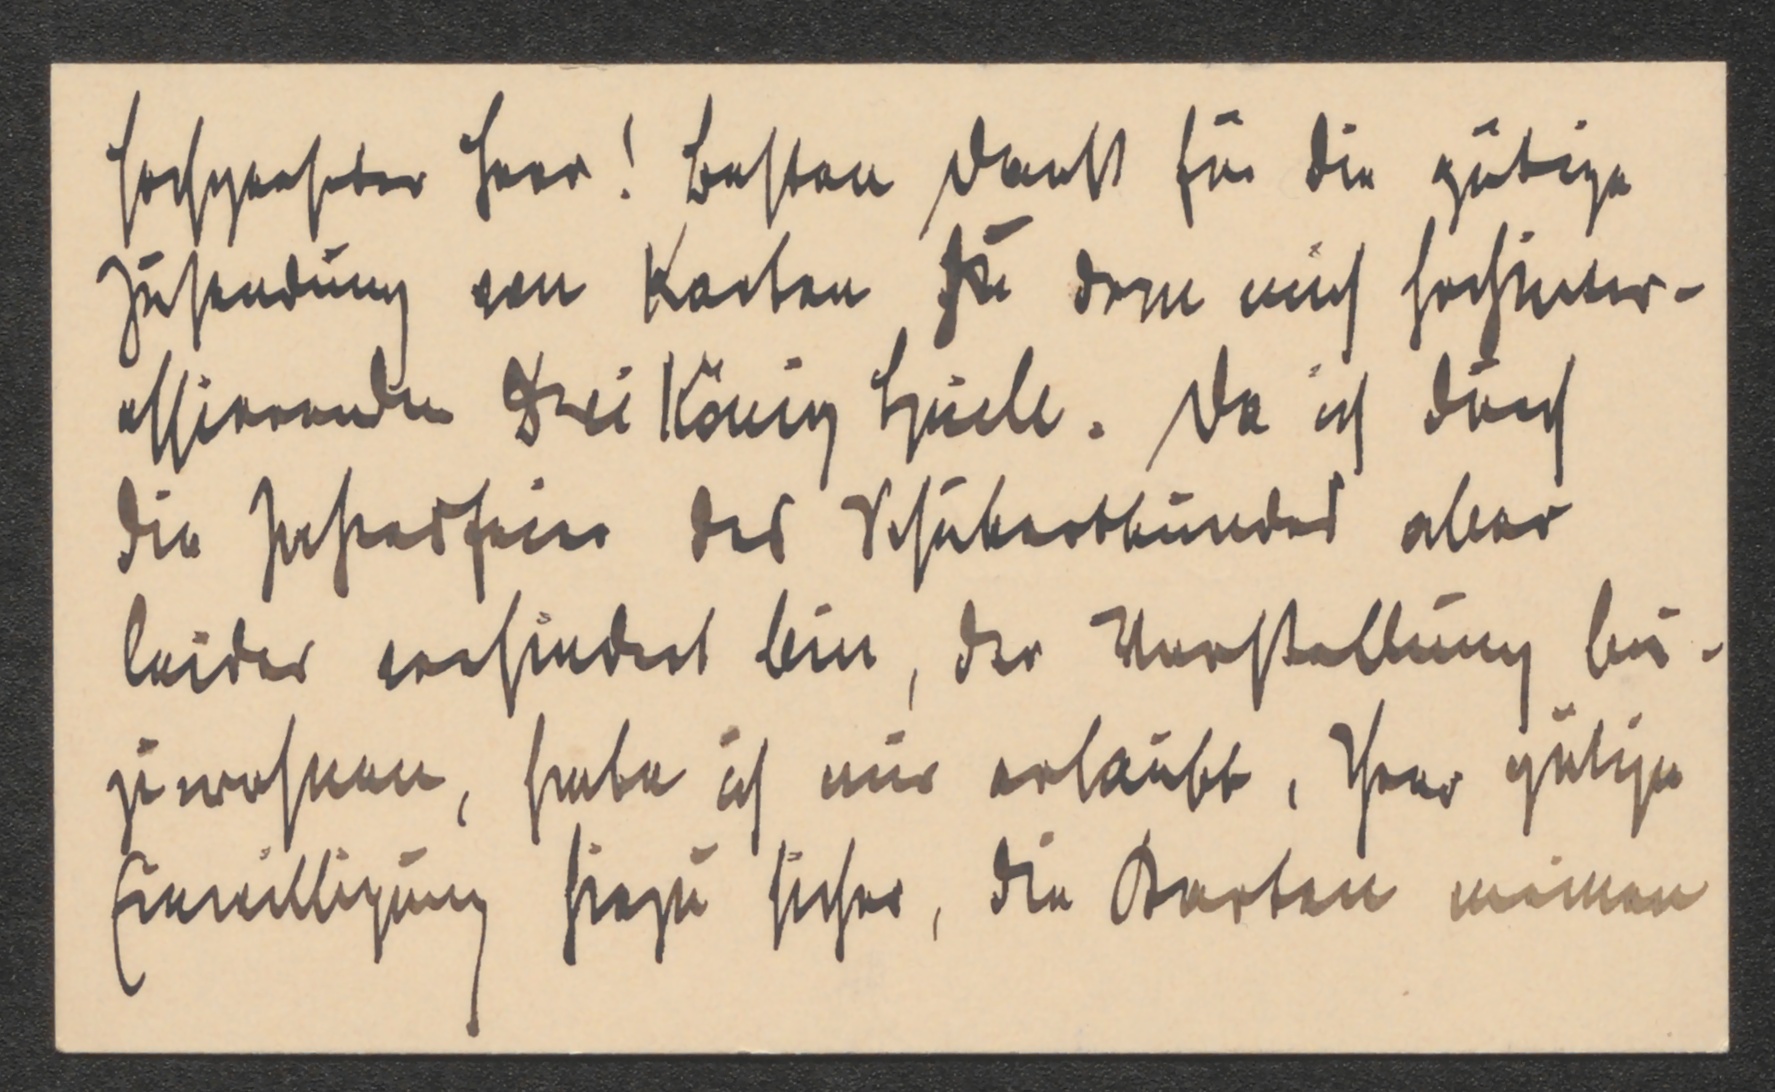 Hochgeehrter Herr! Besten Dank für die gütige
Zusendung von Karten zu dem mich hochinter-
essierenden Drei König Spiele. Da ich durch
die Jahresfeier des Schubertbundes aber
leider verhindert bin, der Vorstellung bei-
zuwohnen, habe ich mir erlaubt, Ihrer gütigen
Einwilligung hiezu sicher, die Karten meinen